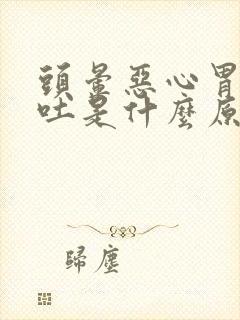 頭暈惡心胃
吐是什麼原
歸塵